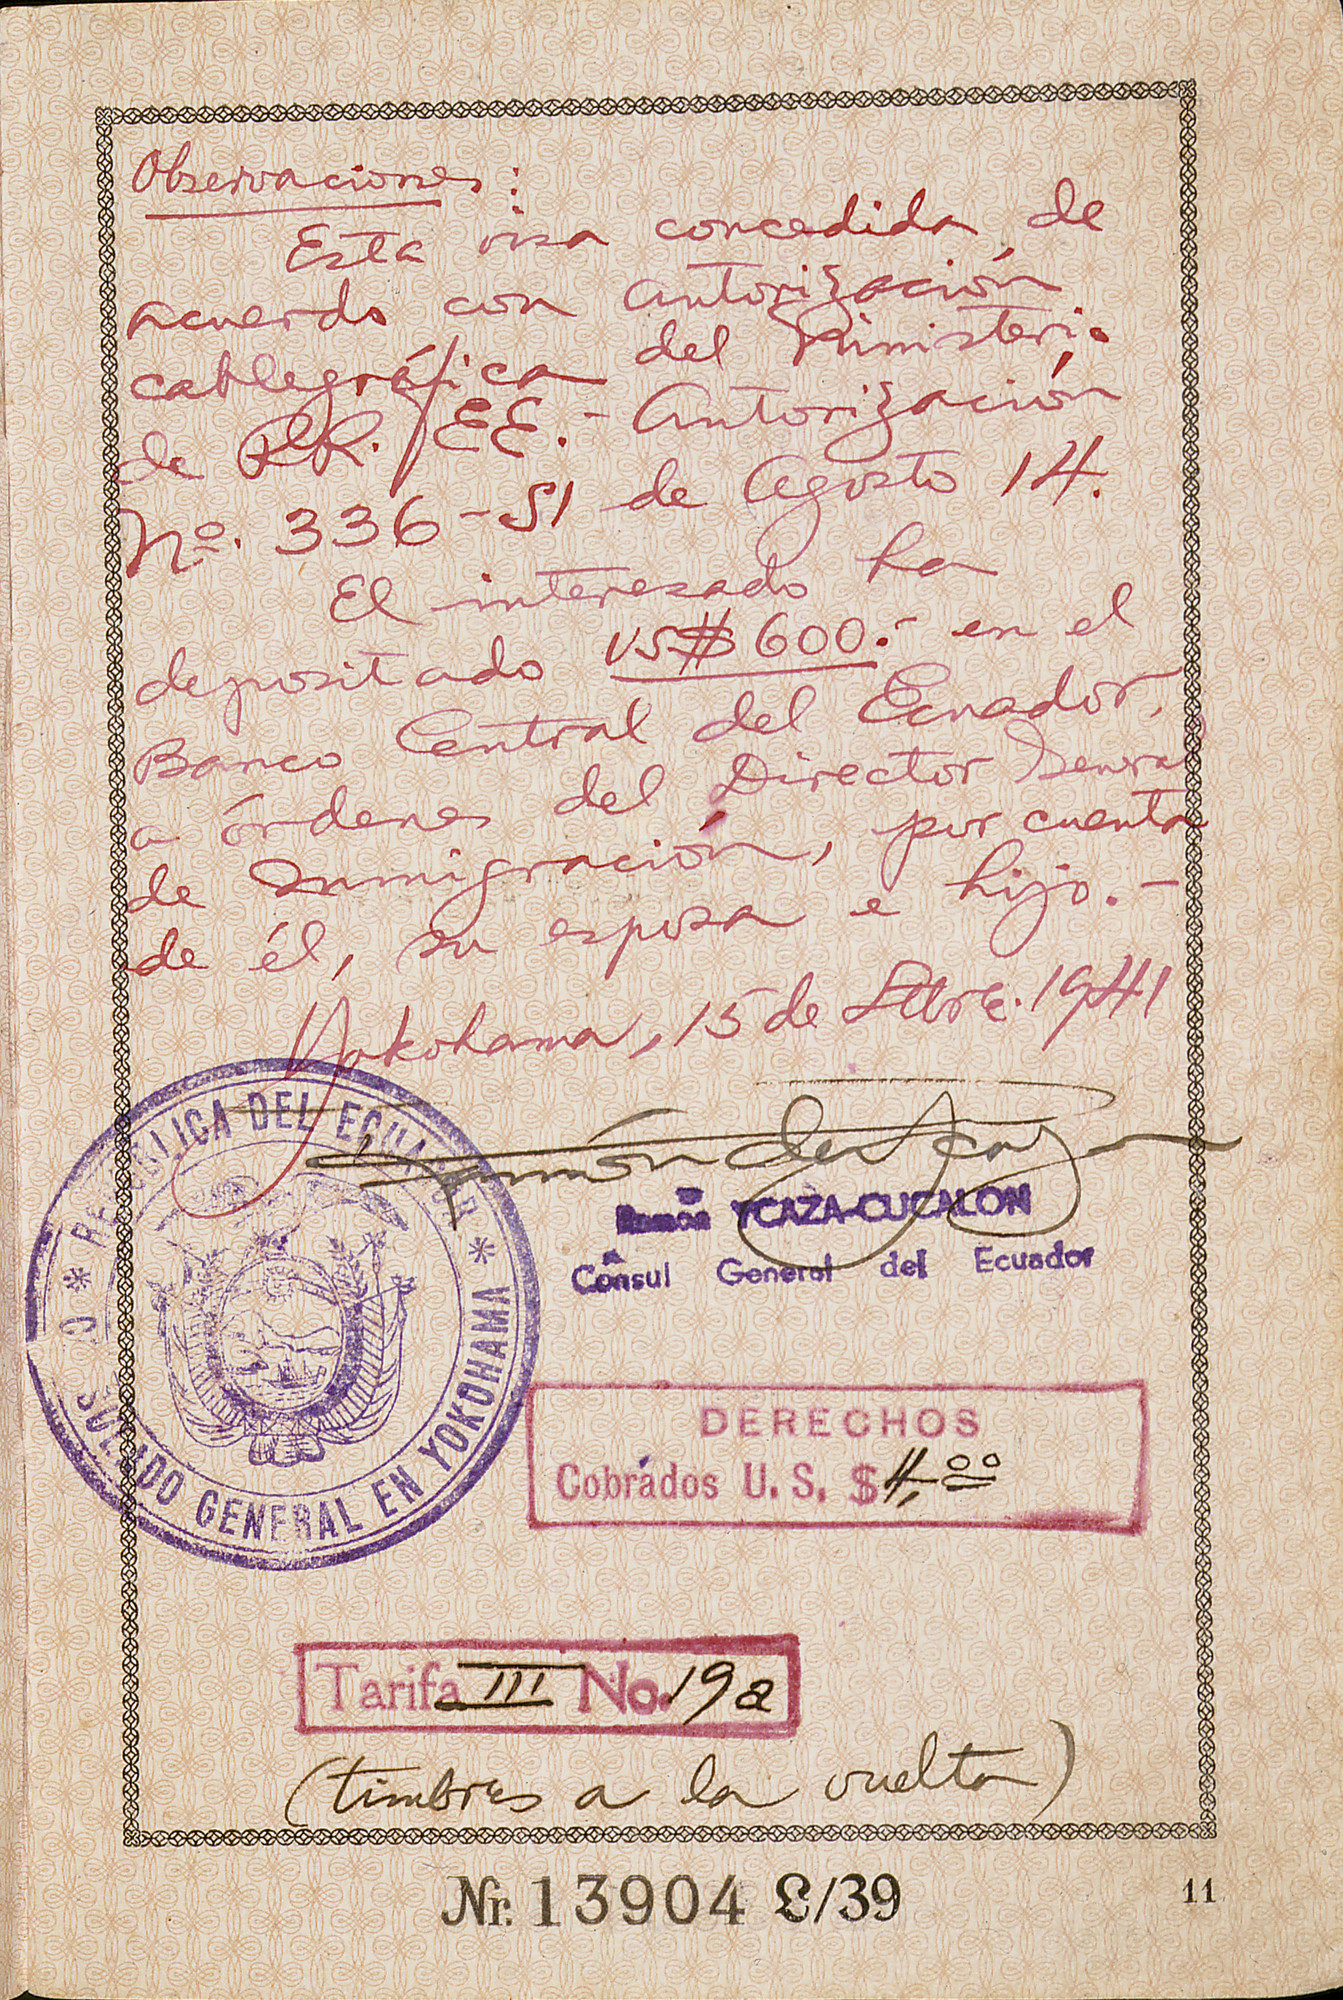 Observaciones:
Esta visa concedida de
acuerdo con autorización
cablegráfica del Ministerio
de RR. EE. - Autorización
Nº. 336-S1 de Agosto 14.
El interesado ha
depositado US$ 600.- en el
Banco Central del Ecuador,
a órdenes del Director General
de Inmigración, por cuenta
de él, su esposa e hijo. -
Yokohama, 15 de Stbre. 1941
Ramón YCAZA-CUCALON
Cónsul General del Ecuador
* REPUBLICA DEL ECUADOR *
CONSULADO GENERAL EN YOKOHAMA
DERECHOS
Cobrados U. S. $ 4,00
Tarifa III No. 19a
(timbres a la vuelta)
Nr. 13904 L/39
11